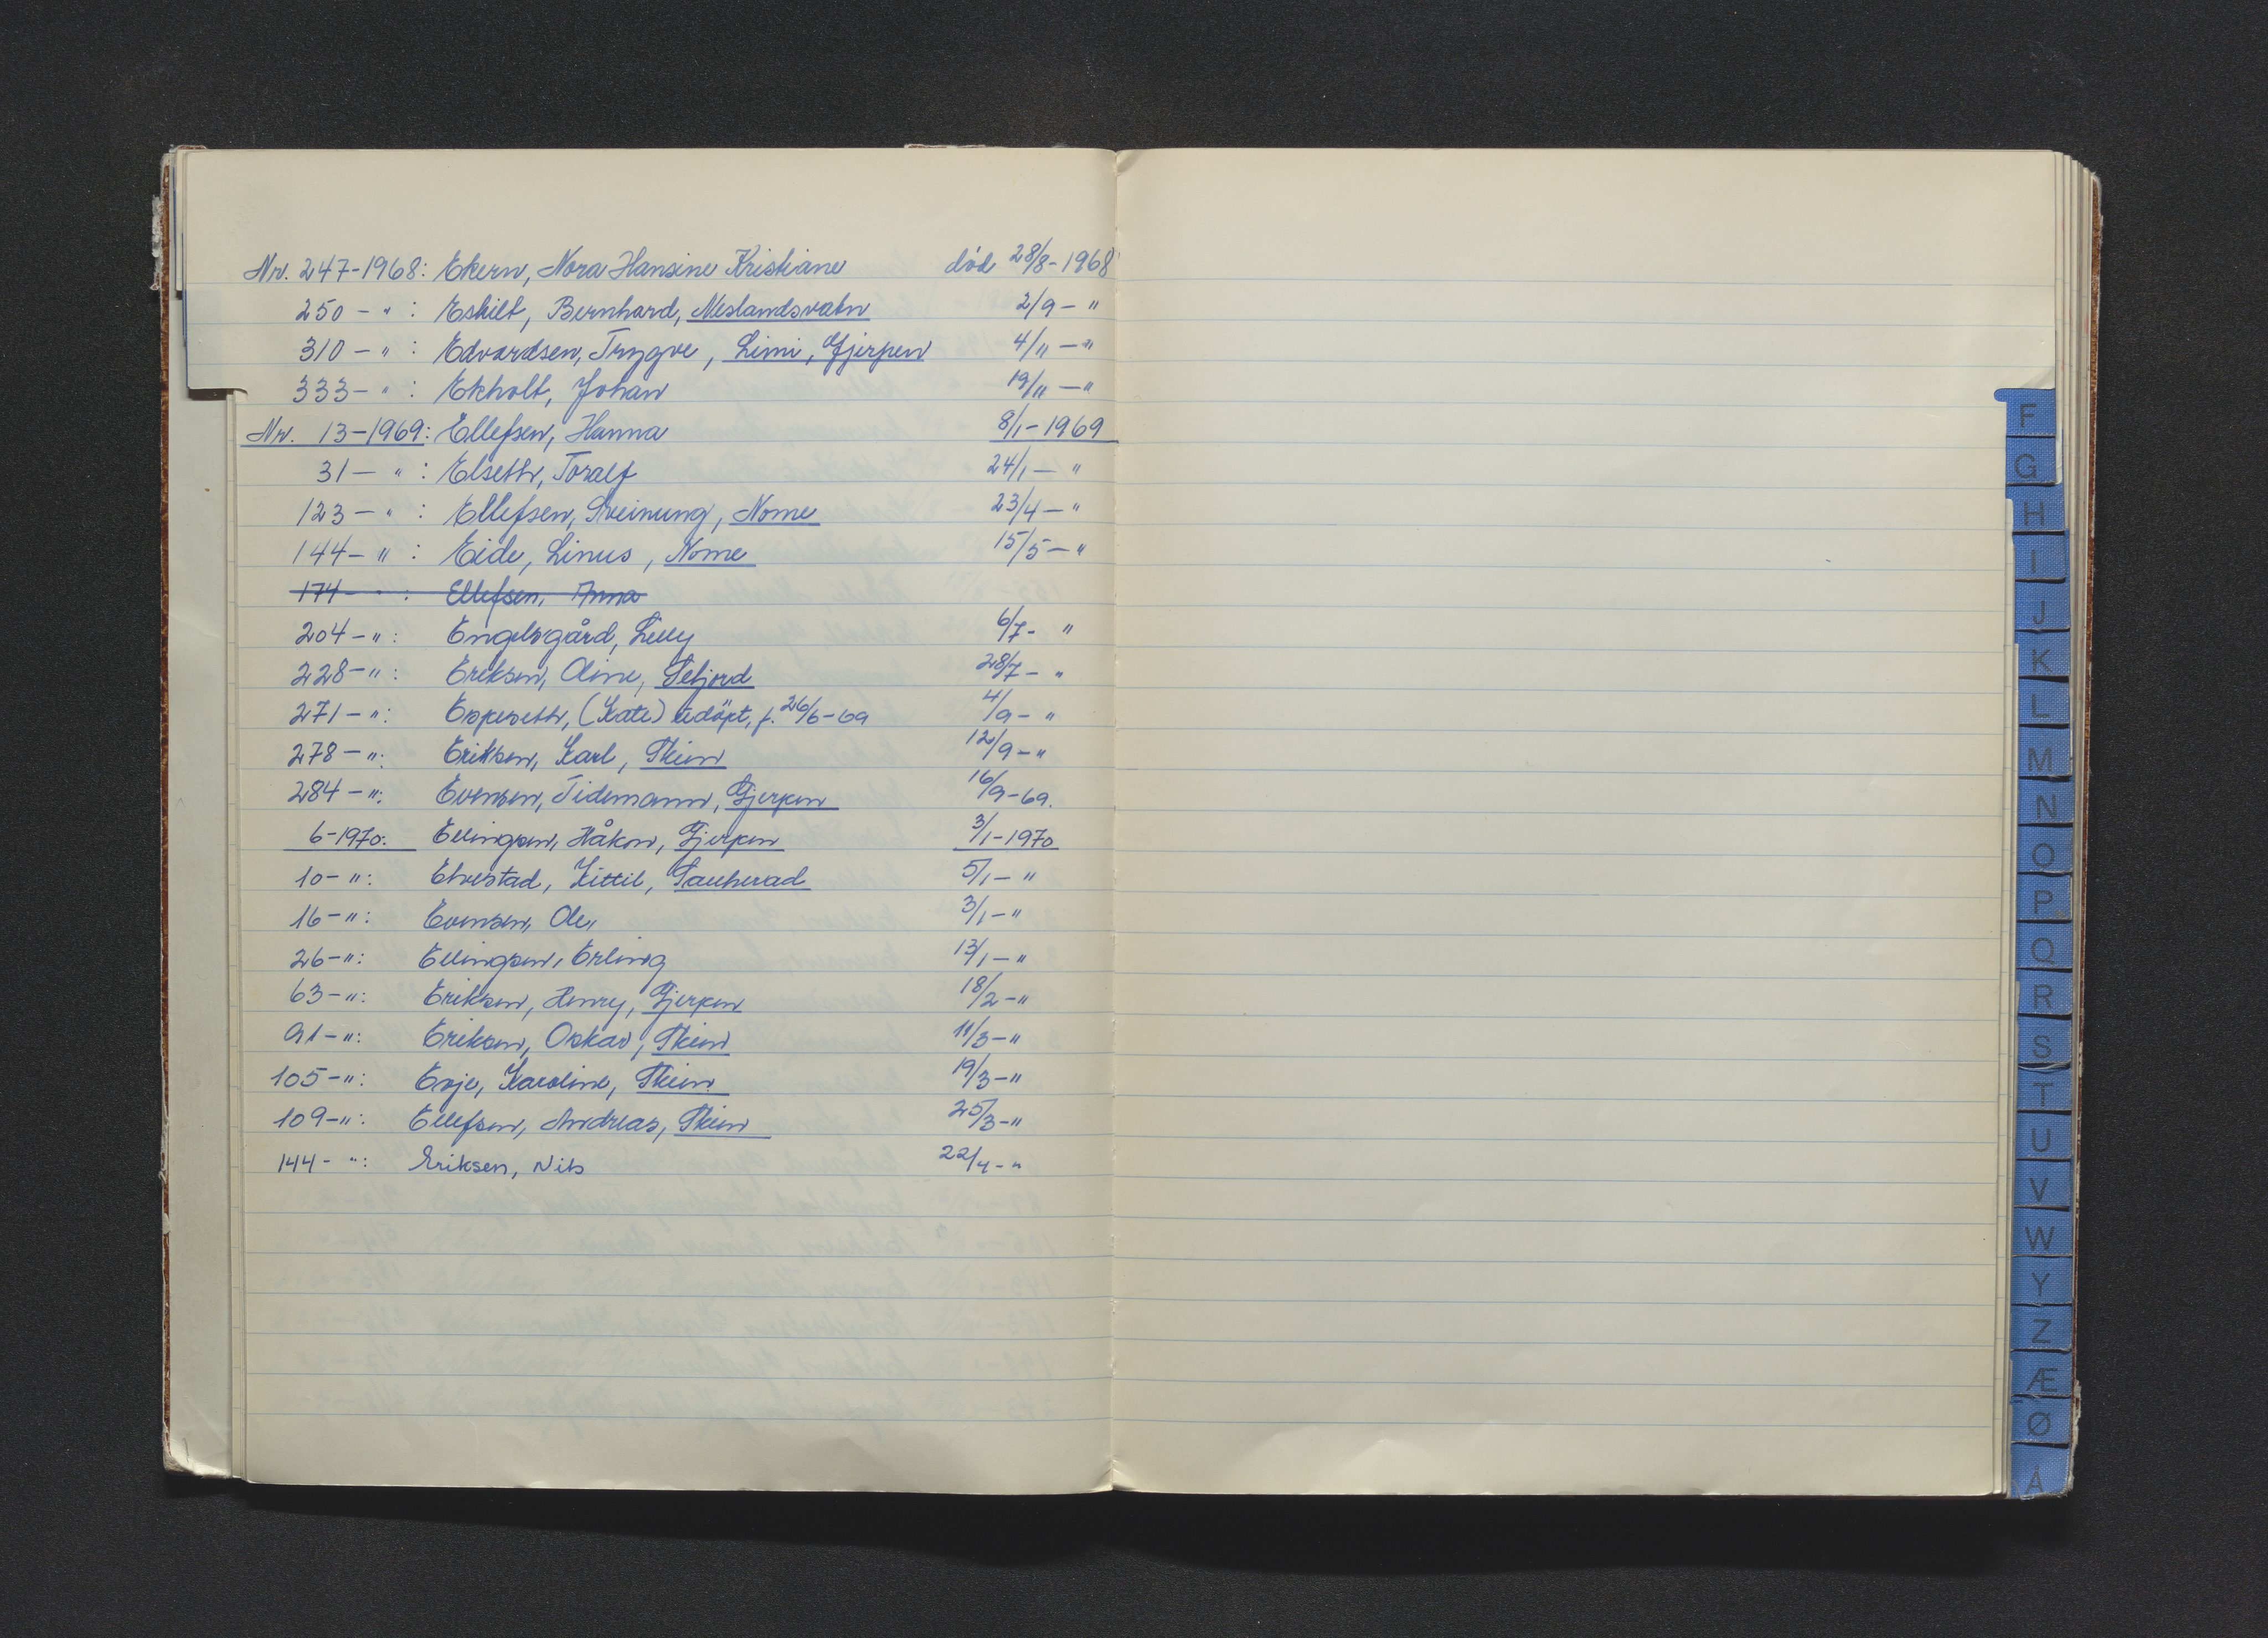 Nr. 247-1968: Ekern, Nora Hansine Kristiane død 28/8-1968
250 - " : Eskilt, Bernhard, Neslandsvatn 2/9 - "
310 - " : Edvardsen, Trygve, Limi, Gjerpen 4/11 - "
333 - " : Ekholt, Johan 19/11 - "
Nr. 13-1969: Ellefsen, Hanna 8/1-1969
31 - " : Elseth, Toralf 24/1 - "
123 - " : Ellefsen, Sveinung, Nome 23/4 - "
144 - " : Eide, Linus, Nome 15/5 - "
174 - " : Ellefsen, Anna
204 - " : Engelsgård, Lilly 6/7 - "
228 - " : Eriksen, Oline, Seljord 28/7 - "
271 - " : Espeseth, (Kate) udöpt, f. 26/6-69 4/9 - "
278 - " : Eriksen, Karl, Skien 12/9 - "
284 - " : Evensen, Tidemann, Gjerpen 16/9-69.
6-1970: Ellingsen, Håkon, Gjerpen 3/1-1970
10 - " : Elvestad, Kittil, Sauherad 5/1 - "
16 - " : Evensen, Ole, 3/1 - "
26 - " : Ellingsen, Erling 13/1 - "
63 - " : Eriksen, Henry, Gjerpen 18/2 - "
91 - " : Eriksen, Oskar, Skien 11/3 - "
105 - " : Evje, Karoline, Skien 19/3 - "
109 - " : Ellefsen, Andreas, Skien 25/3 - "
144 - " : Eriksen, Nils 22/4 - "
F
G
H
I
J
K
L
M
N
O
P
Q
R
S
T
U
V
W
Y
Z
Æ
Ø
Å